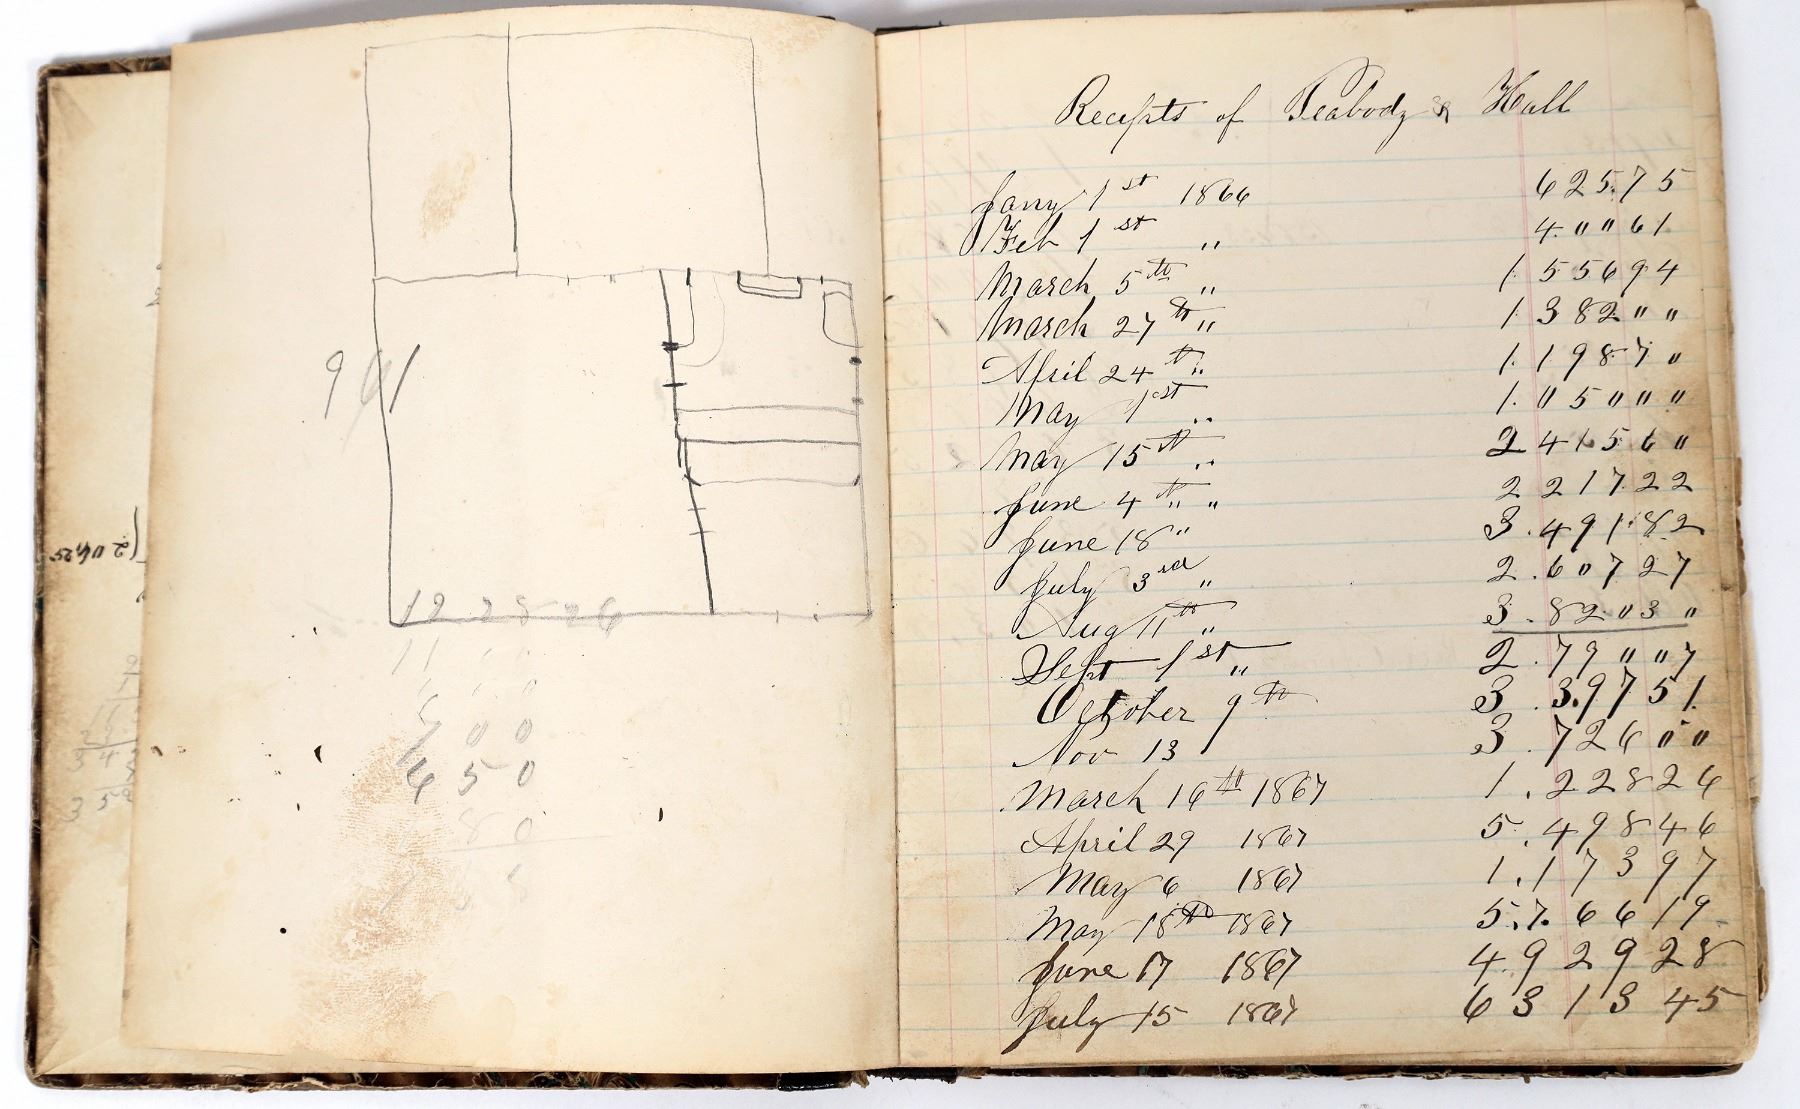 9 61
12 2826
700
650
80
(2 04.25
Recepts of Peabody & Hall
Jany 1st 1866 625.75
Feb 1st " 4.""61
March 5th " 1.55694
March 27th " 1.382""
April 24th " 1.1987"
May 1st " 1."5"""
May 15th " 2 4156"
June 4th " " 2 21722
June 18 " 3.491.82
July 3rd " 2.6"727
Aug 11th " 3.82"3"
Sept 1st " 2.79""7
October 9th 3.3.9751
Nov 13 3.726""
March 16th 1867 1.22826
April 29 1867 5.49846
May 6 1867 1.17397
May 18th 1867 5.7.6619
June 17 1867 4.92928
July 15 1867 631345